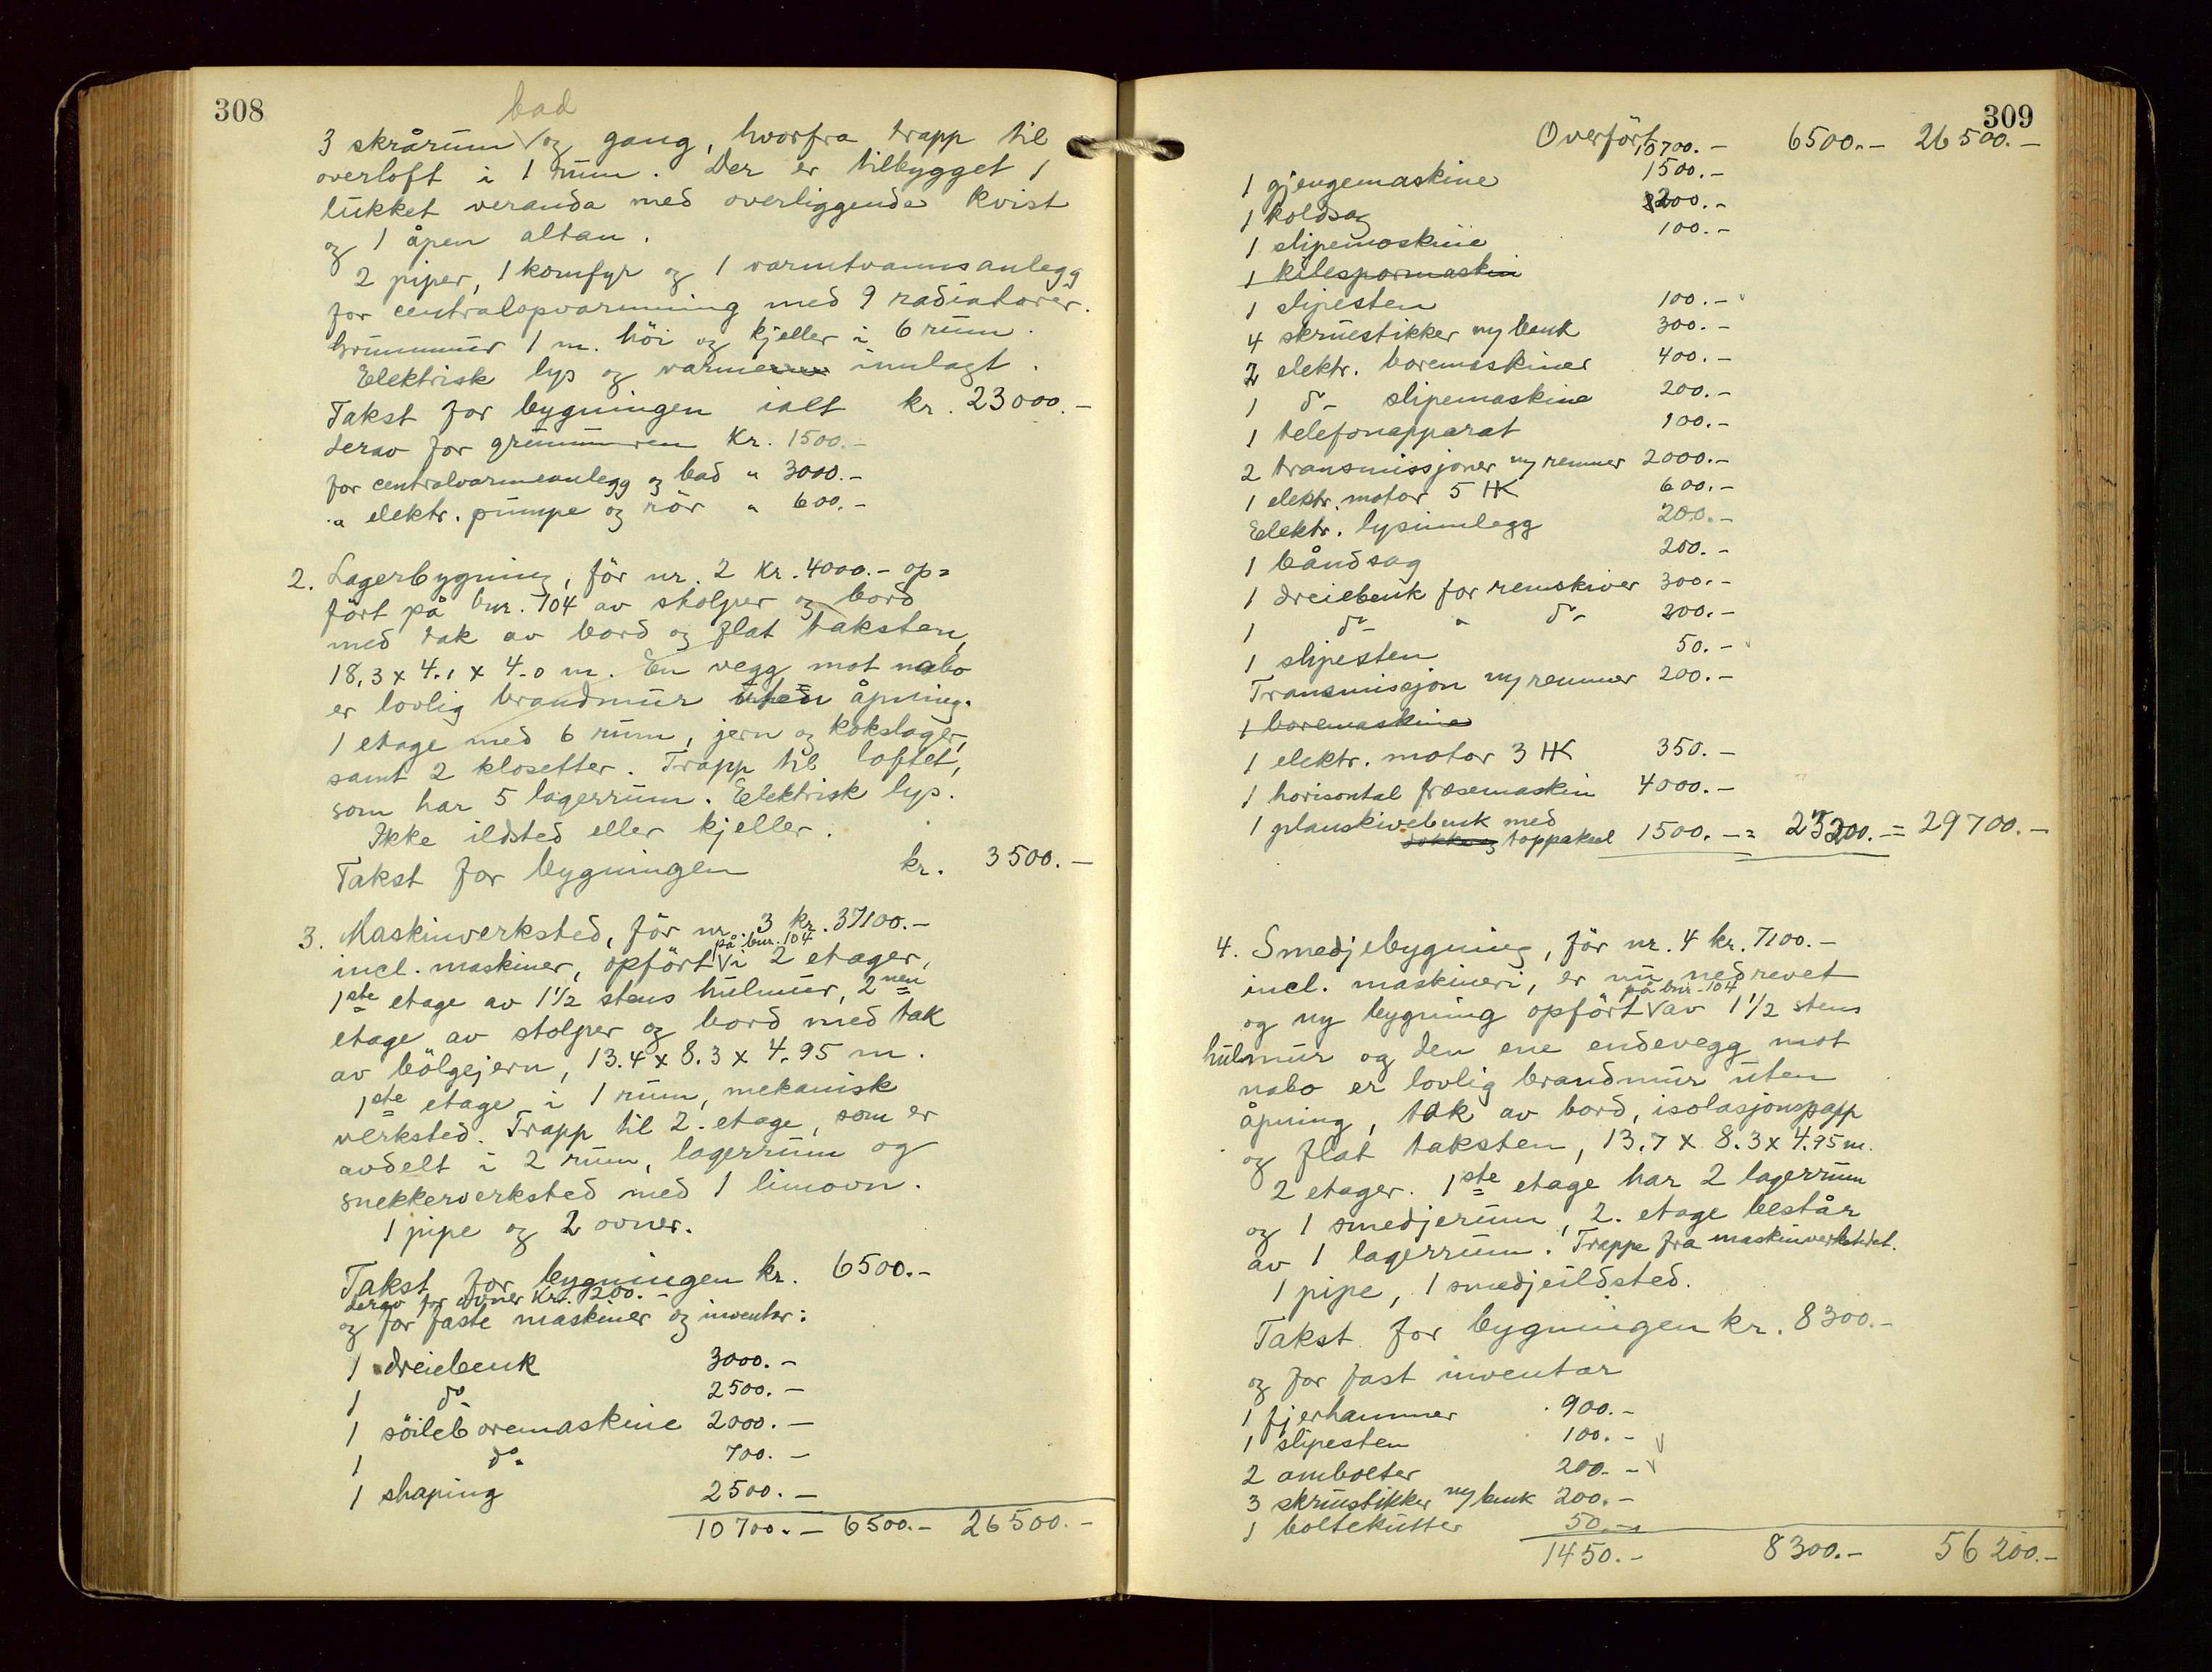 308
bad
3 skrårum √ og gang, hvorfra trapp til
overloft i 1 rum. Der er tilbygget 1
lukket veranda med overliggende kvist
og 1 åpen altan.
2 piper, 1 komfyr og 1 varmtvannsanlegg
for centralopvarmning med 9 radiatorer.
Grunnmur 1 m. höi og kjeller i 6 rum.
Elektrisk lys og varme innlagt.
Takst for bygningen ialt kr. 23000.-
derav for grunnmuren Kr. 1500.-
for centralvarmeanlegg og bad " 3000.-
" elektr. pumpe og rör " 600.-
2. Lagerbygning, för nr. 2 Kr. 4000.- op=
fört på bnr. 104 av stolper og bord
med tak av bord og flat taksten,
18.3 x 4.1 x 4.0 m. En vegg mot nabo
er lovlig brandmur uten åpning.
1 etage med 6 rum, jern og kokslager,
samt 2 klosetter. Trapp til loftet,
som har 5 lagerrum. Elektrisk lys.
Ikke ildsted eller kjeller.
Takst for bygningen kr. 3500.-
3. Maskinverksted, för nr. 3 kr. 37100.-
på bnr. 104
incl. maskiner, opfört √ i 2 etager,
1ste etage av 1½ stens hulmur, 2nen
etage av stolper og bord med tak
av bölgejern, 13.4 x 8.3 x 4.95 m.
1ste etage i 1 rum, mekanisk
verksted. Trapp til 2. etage, som er
avdelt i 2 rum, lagerrum og
snekkerverksted med 1 limovn.
1 pipe og 2 ovner.
Takst for bygningen kr. 6500.-
derav for ovner Kr. 200.-
og for faste maskiner og inventar:
1 dreiebenk 3000.-
1 do 2500.-
1 söileboremaskine 2000.-
1 do. 700.-
1 shaping 2500.-
10700.- 6500.- 26500.-
309
Overfört 10700.- 6500.- 26500.-
1 gjengemaskine 1500.-
1 koldsag 200.-
1 slipemaskine 100.-
1 kilespormaskin
1 slipesten 100.-
4 skruestikker m/ benk 300.-
2 elektr. boremaskiner 400.-
1 do - slipemaskine 200.-
1 telefonapparat 100.-
2 transmissjoner m/ remmer 2000.-
1 elektr. motor 5 HK 600.-
Elektr. lysinnlegg 200.-
1 båndsag 200.-
1 dreiebenk for remskiver 300.-
1 do - " do - 200.-
1 slipesten 50.-
Transmissjon m/ remmer 200.-
1 boremaskine
1 elektr. motor 3 HK 350.-
1 horisontal fræsemaskin 4000.-
1 planskivebenk med
toppaksel 1500.- = 23200.- = 29700.-
4. Smedjebygning, för nr. 4 kr. 7100.-
incl. maskineri, er nu nedrevet
på bnr. 104
og ny bygning opfört √ av 1½ stens
hulmur og den ene endevegg mot
nabo er lovlig brandmur uten
åpning, tak av bord, isolasjonspapp
og flat taksten, 13.7 x 8.3 x 4.95 m.
2 etager. 1ste etage har 2 lagerrum
og 1 smedjerum, 2. etage består
av 1 lagerrum. Trappe fra maskinverkstedet.
1 pipe, 1 smedjeildsted.
Takst for bygningen kr. 8300.-
og for fast inventar
1 fjerhammer 900.-
1 slipesten 100.-
2 ambolter 200.-
3 skruestikker m/ benk 200.-
1 boltekutter 50.-
1450.- 8300.- 56200.-